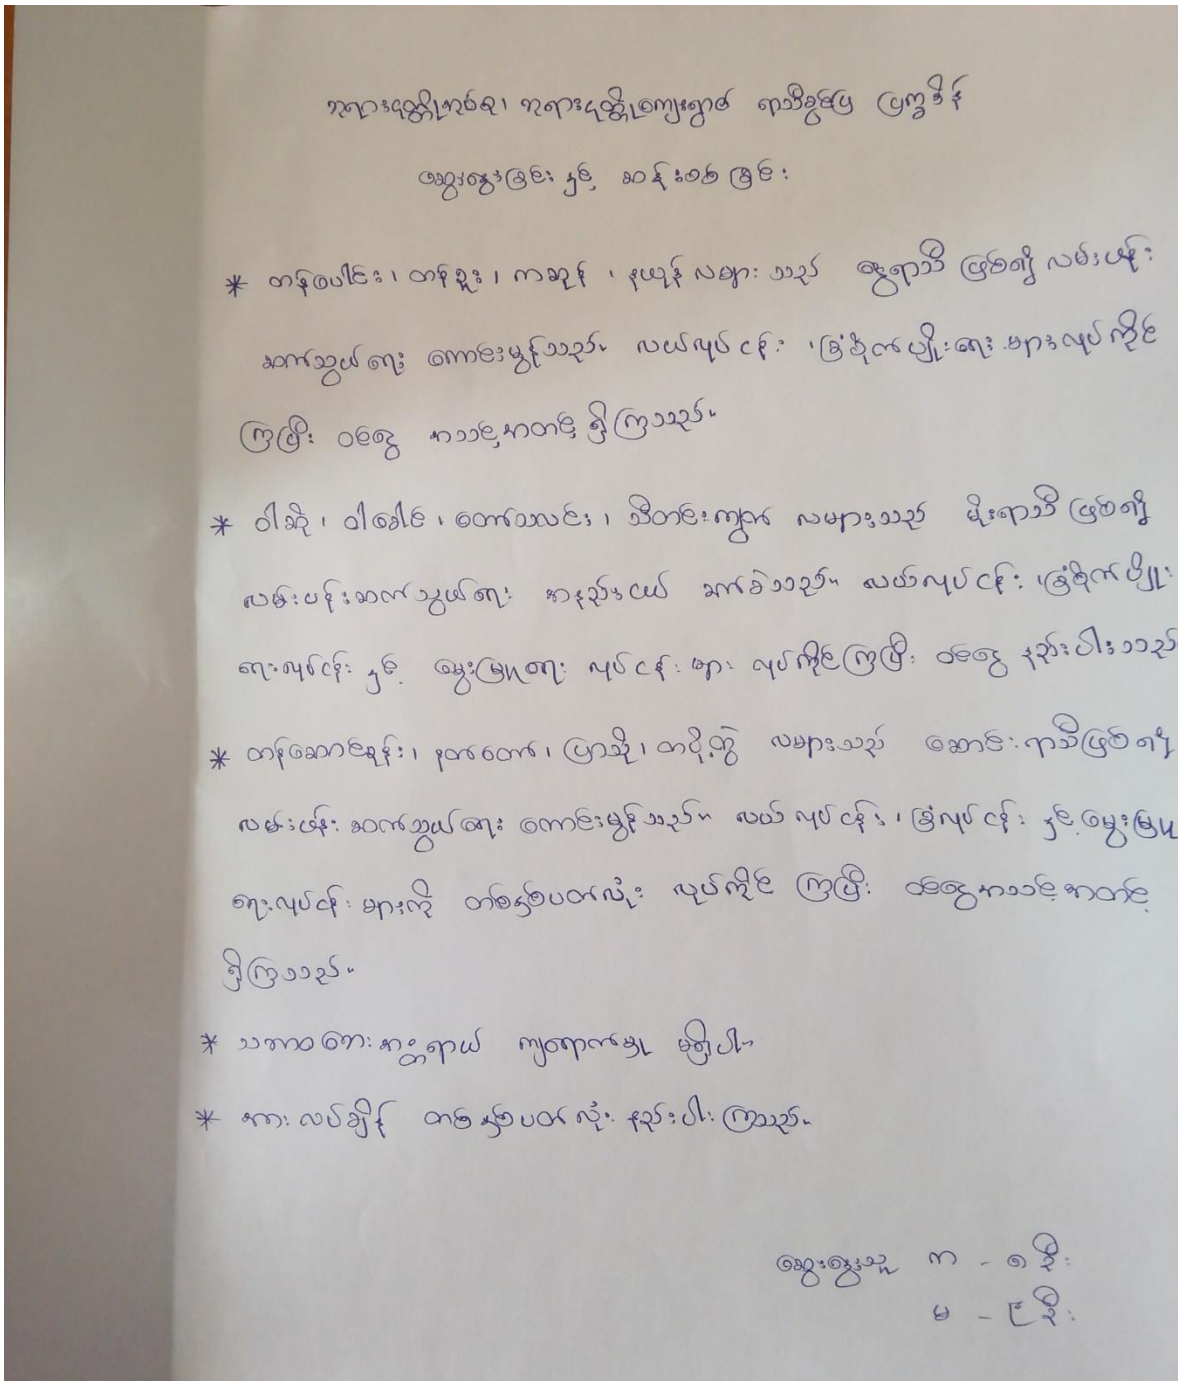 ဘုရားငုတ္တိုအုပ်စု၊ ဘုရားငုတ္တိုကျေးရွာ၏ ရာသီခွင်ပြ ပြက္ခဒိန်
ဆွေးနွေးခြင်း နှင့် ဆန်းစစ်ခြင်း
* တန်ပေါင်း၊ တန်ခူး၊ ကဆုန် ၊ နယုန် လများ သည် နွေရာသီ ဖြစ်၍ လမ်းပန်း
ဆက်သွယ်ရေး ကောင်းမွန်သည်။ လယ်လုပ်ငန်း ၊ခြံစိုက်ပျိုးရေး များလုပ်ကိုင်
ကြပြီး ဝင်ငွေ အသင့်အတင့် ရှိကြသည်။
* ဝါဆို ၊ ဝါခေါင် ၊ တော်သလင်း ၊ သီတင်းကျွတ် လများသည် မိုးရာသီ ဖြစ်၍
လမ်းပန်းဆက်သွယ်ရေး အနည်းငယ် ခက်ခဲသည်။ လယ်လုပ်ငန်း ၊ခြံစိုက်ပျိုး
ရေးလုပ်ငန်း နှင့် မွေးမြူရေး လုပ်ငန်း များ လုပ်ကိုင်ကြပြီး ဝင်ငွေ နည်းပါးသည်
* တန်ဆောင်မုန်း၊ နတ်တော်၊ ပြာသို၊ တပို့တွဲ လများသည် ဆောင်းရာသီဖြစ်၍
လမ်းပန်း ဆက်သွယ်ရေး ကောင်းမွန်သည်။ လယ်လုပ်ငန်း ၊ ခြံလုပ်ငန်း နှင့် မွေးမြူ
ရေးလုပ်ငန်း များကို တစ်နှစ်ပတ်လုံး လုပ်ကိုင် ကြပြီး ဝင်ငွေအသင့်အတင့်
ရှိကြသည်။
* သဘာဝဘေးအန္တရာယ် ကျရောက်မှု မရှိပါ။
* အားလပ်ချိန် တစ်နှစ်ပတ်လုံး နည်းပါးကြသည်။
ဆွေးနွေးသူ ကျ - ၈ ဦး
မ - ၉ ဦး